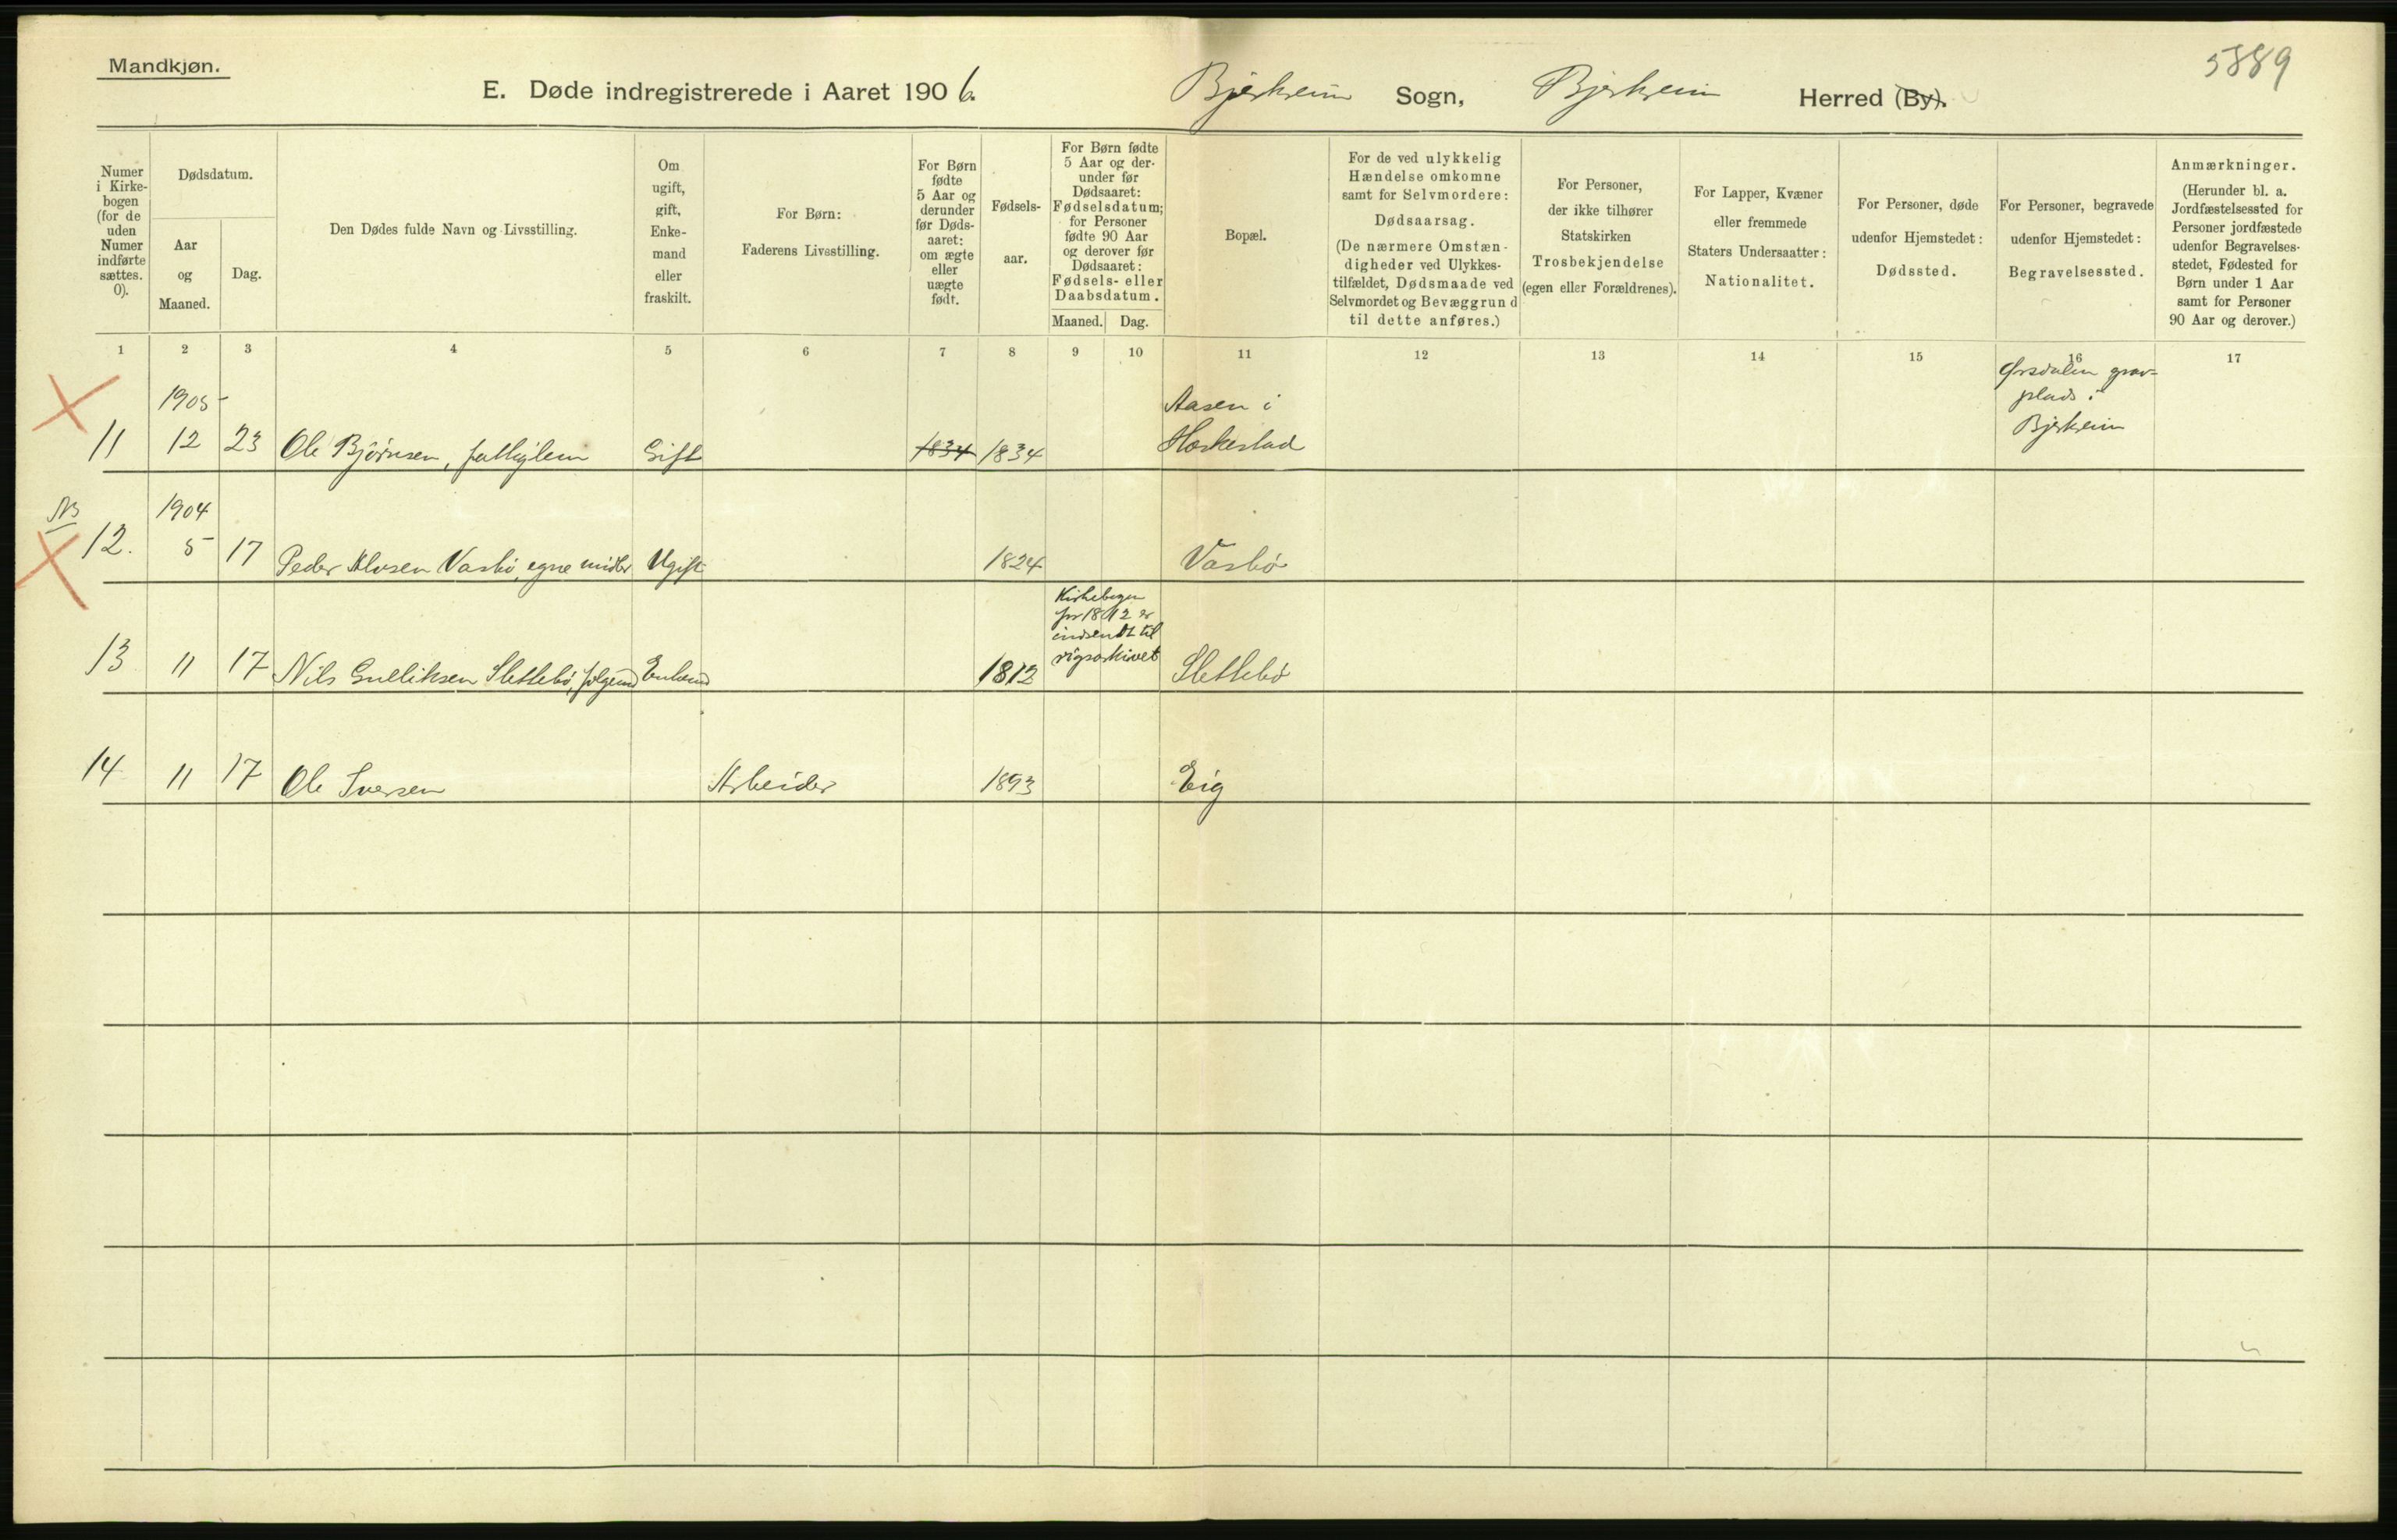 Mandkjøn.
5889
E. Døde indregistrerede i Aaret 1906. Bjerkreim Sogn, Bjerkreim Herred (By).
Numer
i Kirke-
bogen
(for de
uden
Numer
indførte
sættes.
0).
Dødsdatum.
Aar
og
Maaned.
Dag.
Den Dødes fulde Navn og Livsstilling.
Om
ugift,
gift,
Enke-
mand
eller
fraskilt.
For Børn:
Faderens Livsstilling.
For Børn
fødte
5 Aar og
derunder
før Døds-
aaret:
om ægte
eller
uægte
født.
Fødsels-
aar.
For Børn fødte
5 Aar og der-
under før
Dødsaaret:
Fødselsdatum;
for Personer
fødte 90 Aar
og derover før
Dødsaaret:
Fødsels- eller
Daabsdatum.
Maaned. Dag.
Bopæl.
For de ved ulykkelig
Hændelse omkomne
samt for Selvmordere:
Dødsaarsag.
(De nærmere Omstæn-
digheder ved Ulykkes-
tilfældet, Dødsmaade ved
Selvmordet og Bevæggrund
til dette anføres.)
For Personer,
der ikke tilhører
Statskirken
Trosbekjendelse
(egen eller Forældrenes).
For Lapper, Kvæner
eller fremmede
Staters Undersaatter:
Nationalitet.
For Personer, døde
udenfor Hjemstedet:
Dødssted.
For Personer, begravede
udenfor Hjemstedet:
Begravelsessted.
Anmærkninger.
(Herunder bl. a.
Jordfæstelsessted for
Personer jordfæstede
udenfor Begravelses-
stedet, Fødested for
Børn under 1 Aar
samt for Personer
90 Aar og derover.)
1 2 3 4 5 6 7 8 9 10 11 12 13 14 15 16 17
1905
Aasen i
Ørsdalen grav-
plads i
Bjerkreim
11 12 23 Ole Björnsen, fattiglem Gift 1834 1834 Hoskestad
NB
1904
12. 5 17 Peder Alvsen Vasbö, egne midler Ugift 1824 Vasbö
Kirkebogen
for 1812 er
indsendt til
rigsarkivet
13 11 17 Nils Gulliksen Slettebö, folgemd Enkemd 1812 Slettebö
14 11 17 Ole Iversen Arbeider 1893 Eig